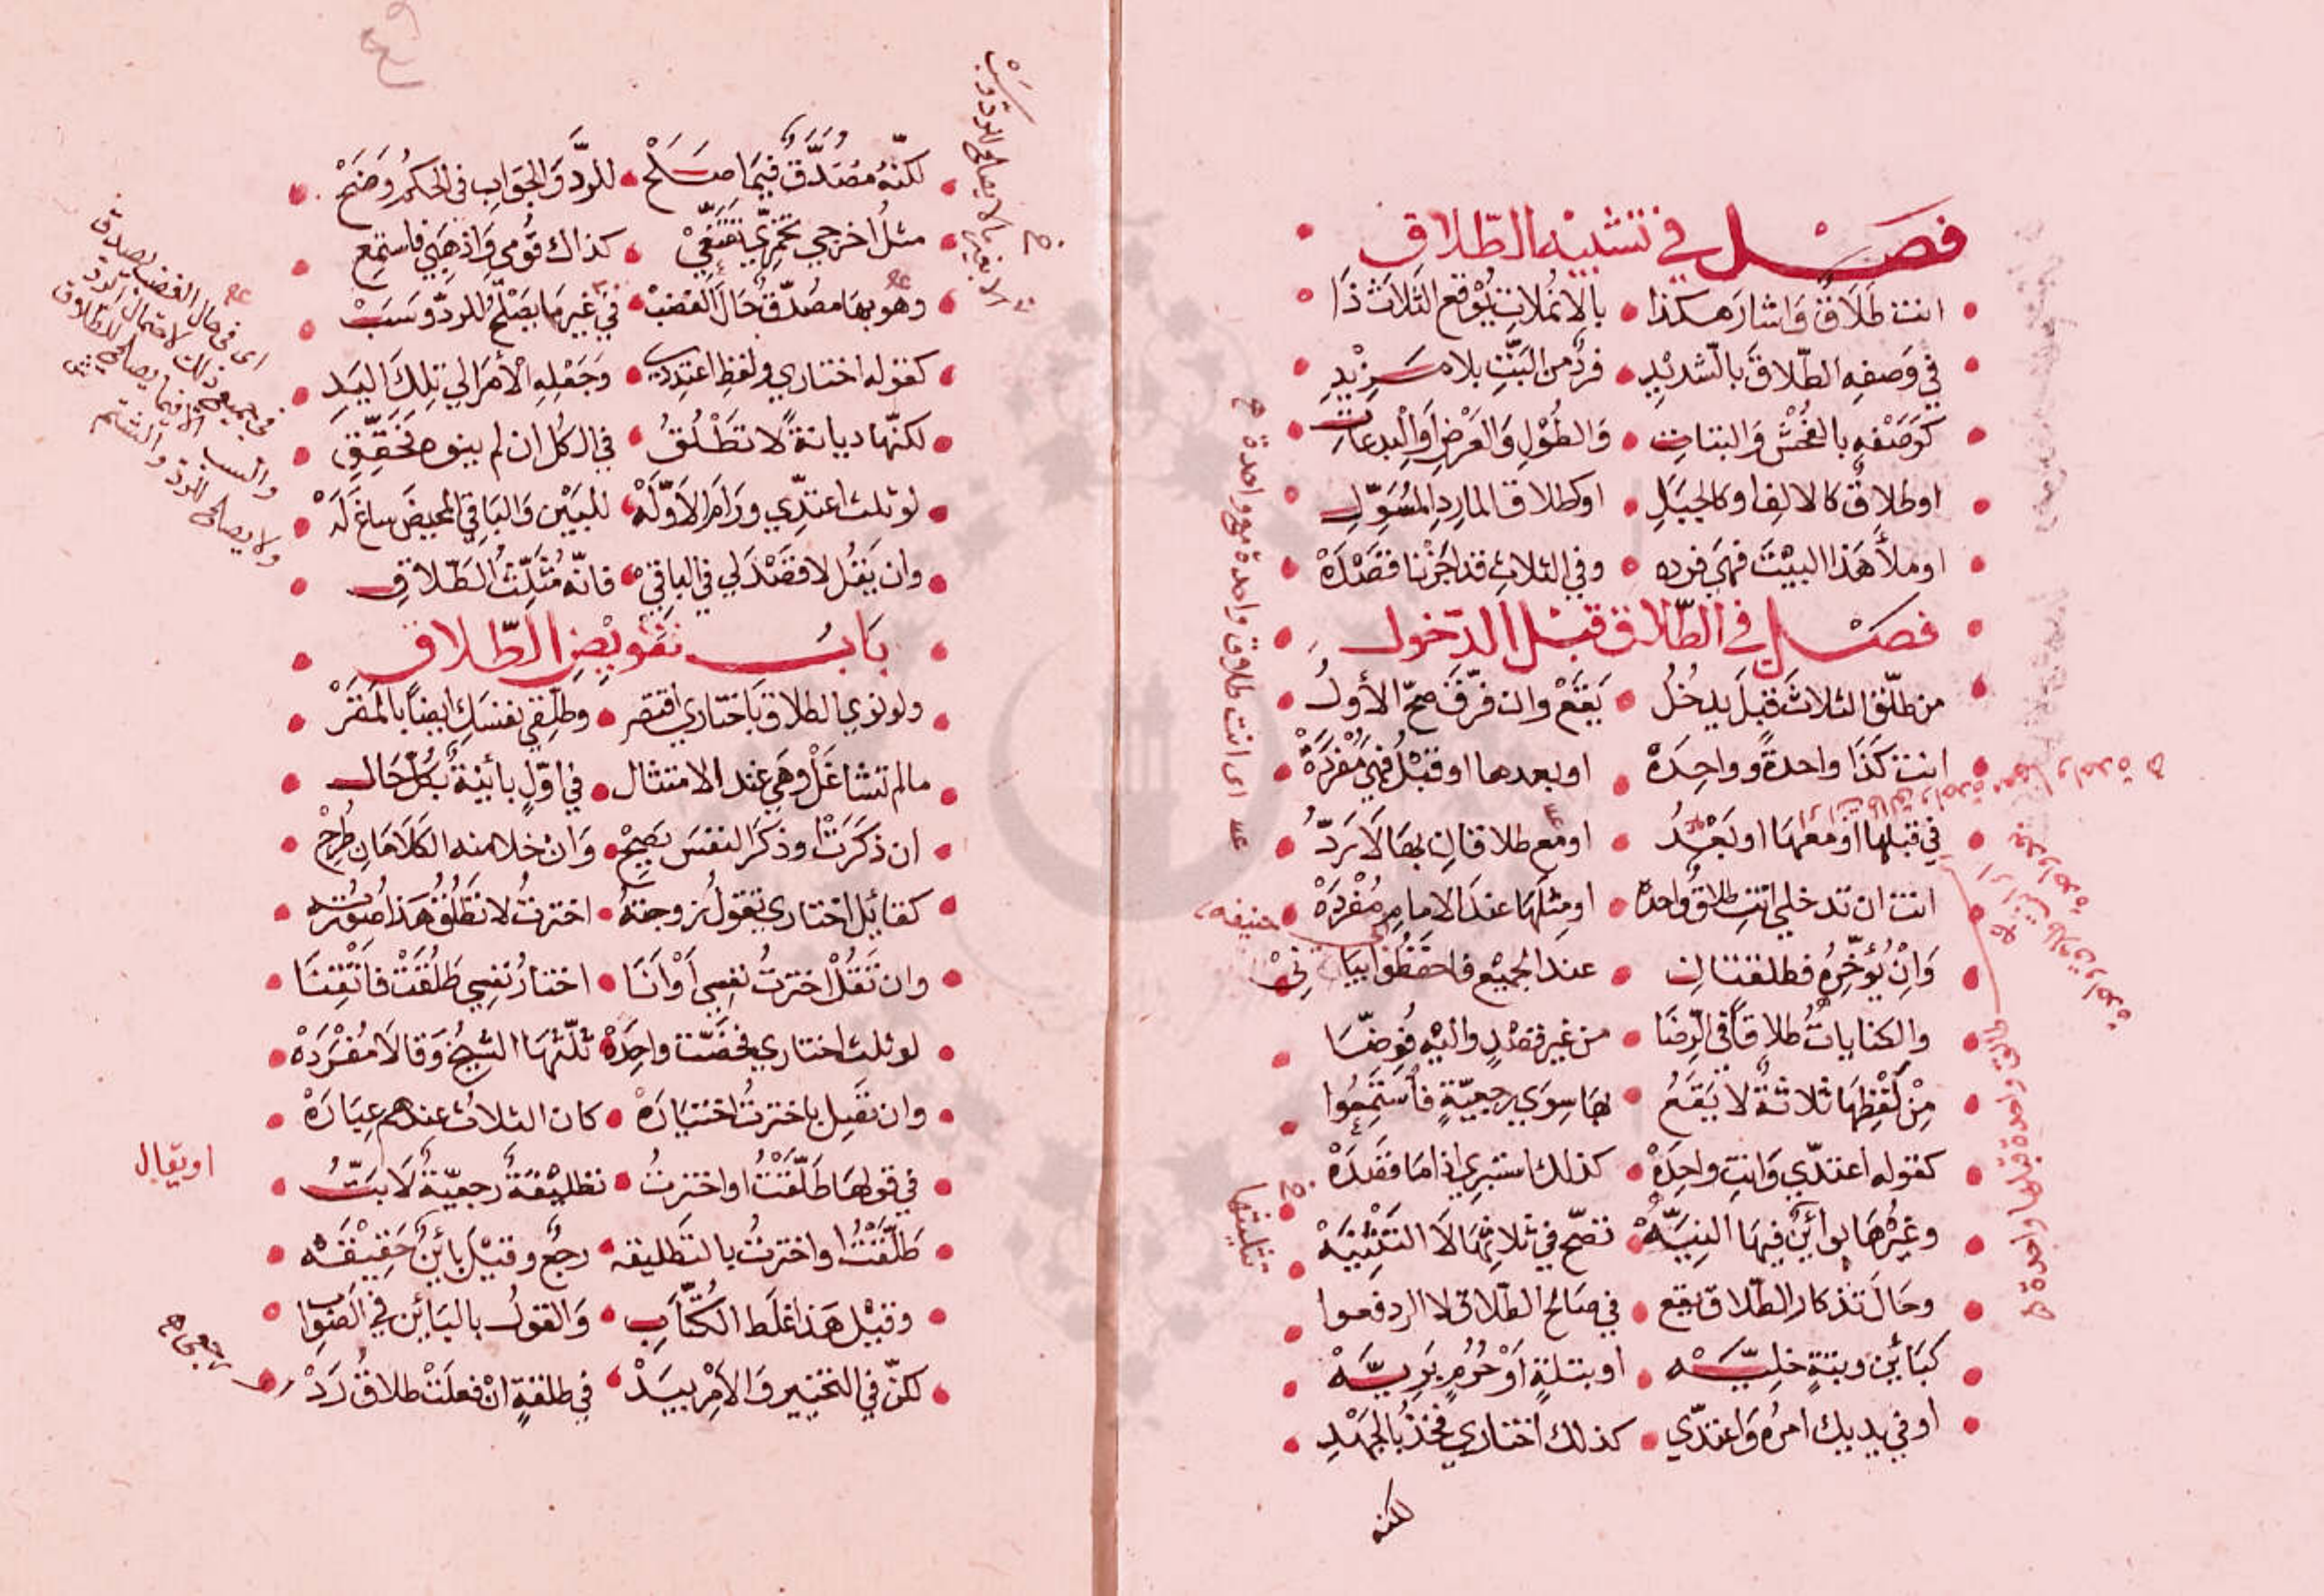 فصل في تشبيه الطلاق
انت طلاق واشار هكذا • بالانملات يوقع الثلاث ذا
في وصفه الطلاق بالتشديد • فرد من البت بلا مزيد
كوصفه بالفحش والبتات • والطول والعرض او البدعات
او طلاق كالالف او كالجبل • او كطلاق المارد المسول
او ملأ هذا البيت فهي فرده • وفي الثلاث قد اجزنا قصده
فصل في الطلاق قبل الدخول
من طلق الثلاث قبل يدخل • يقع وان فرق صح الأول
انت كذا واحدة وواحدة • او بعدها او قبل فهي مفردة
في قبلها او معها او بعد • او مع طلاقان بها لا رد
انت ان تدخلي انت طالق واحده • او مثلها عند الامام مفرده
وان يؤخره فطلقتان • عند الجميع فاحفظوا بياني
والكنايات طلاقا في الرضا • من غير قصد واليه فوضا
من لفظها ثلاثة لا يقع • بها سوى رجعية فاستمعوا
كقوله اعتدي وانت واحده • كذلك استبري اذا ما قصده
وغيرها بوائن فيها النيه • تصح في ثلاثها لا التثنيه
وحال تذكار الطلاق يقع • في صالح الطلاق لا الرد فعوا
كبائن وبتة خليه • او بتلة او حرم بريه
او في يديك امره واعتدي • كذلك اختاري فخذ بالجهد
لكنه
اى انت طالق واحدة مع واحدة
حنيفه
تثليثها
طالق واحدة قبلها واحدة
لكنه مصدق فيما صلح • للرد والجواب في الحكم وضح
مثل اخرجي تخمري تقنعي • كذاك قومي واذهبي فاستمع
وهو بها مصدق حال الغضب • في غير ما يصلح للرد وسب
كقوله اختاري ولفظ اعتدي • وجعله الأمر الي تلك اليد
لكنها ديانة لا تطلق • في الكل ان لم ينوه محقق
لو ثلث اعتدي ورام الاوله • للبين والباقي المحيض ساغ له
وان يقل لا قصد لي في الباقي • فانه مثلث الطلاق
باب تفويض الطلاق
ولو نوى الطلاق باختاري اقتصر • وطلقي نفسك ايضا بالمقر
مالم تشاغل وهي عند الامتثال • في اول بائنة بكل حال
ان ذكرت وذكر النفس يصح • وان خلا منه الكلامان طرح
كقائل اختاري تقول زوجته • اخترت لا تطلق هذا صورته
وان تقل اخترت نفسي او انا • اختار نفسي طلقت فاتقنا
لو ثلث اختاري فخصت واحده • ثلثها الشيخ وقالا مفرده
وان تقبل باخترت اختياره • كان الثلاث عندهم عباره
في قولها طلقت او اخترت • تطليقة رجعية لا بت
طلقت او اخترت بالتطليقه • رجع وقيل بائن حقيقه
وقيل هذا غلط الكتاب • والقول بالبائن في الصواب
لكن في التخيير والامر بيد • في طلقة ان فعلت طلاق رد
اى فى حال الغضب يصدق
فى جميع ذلك لاحتمال الرد
والسب الا فيما يصلح للطلاق
ولا يصلح للرد والشتم
او يقال
رجعى